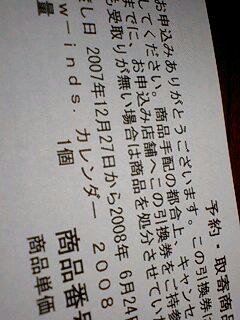 予約・取寄商品
お申込みありがとうございます。この引換券は
してください。商品手配の都合上、キャンセ
までに、お申込み店舗へこの引換券をご持参
も受取りが無い場合は商品を処分させていた
し日 2007年12月27日から2008年 6月24日
w-inds. カレンダー 2008
量 1個 商品番号
商品単価